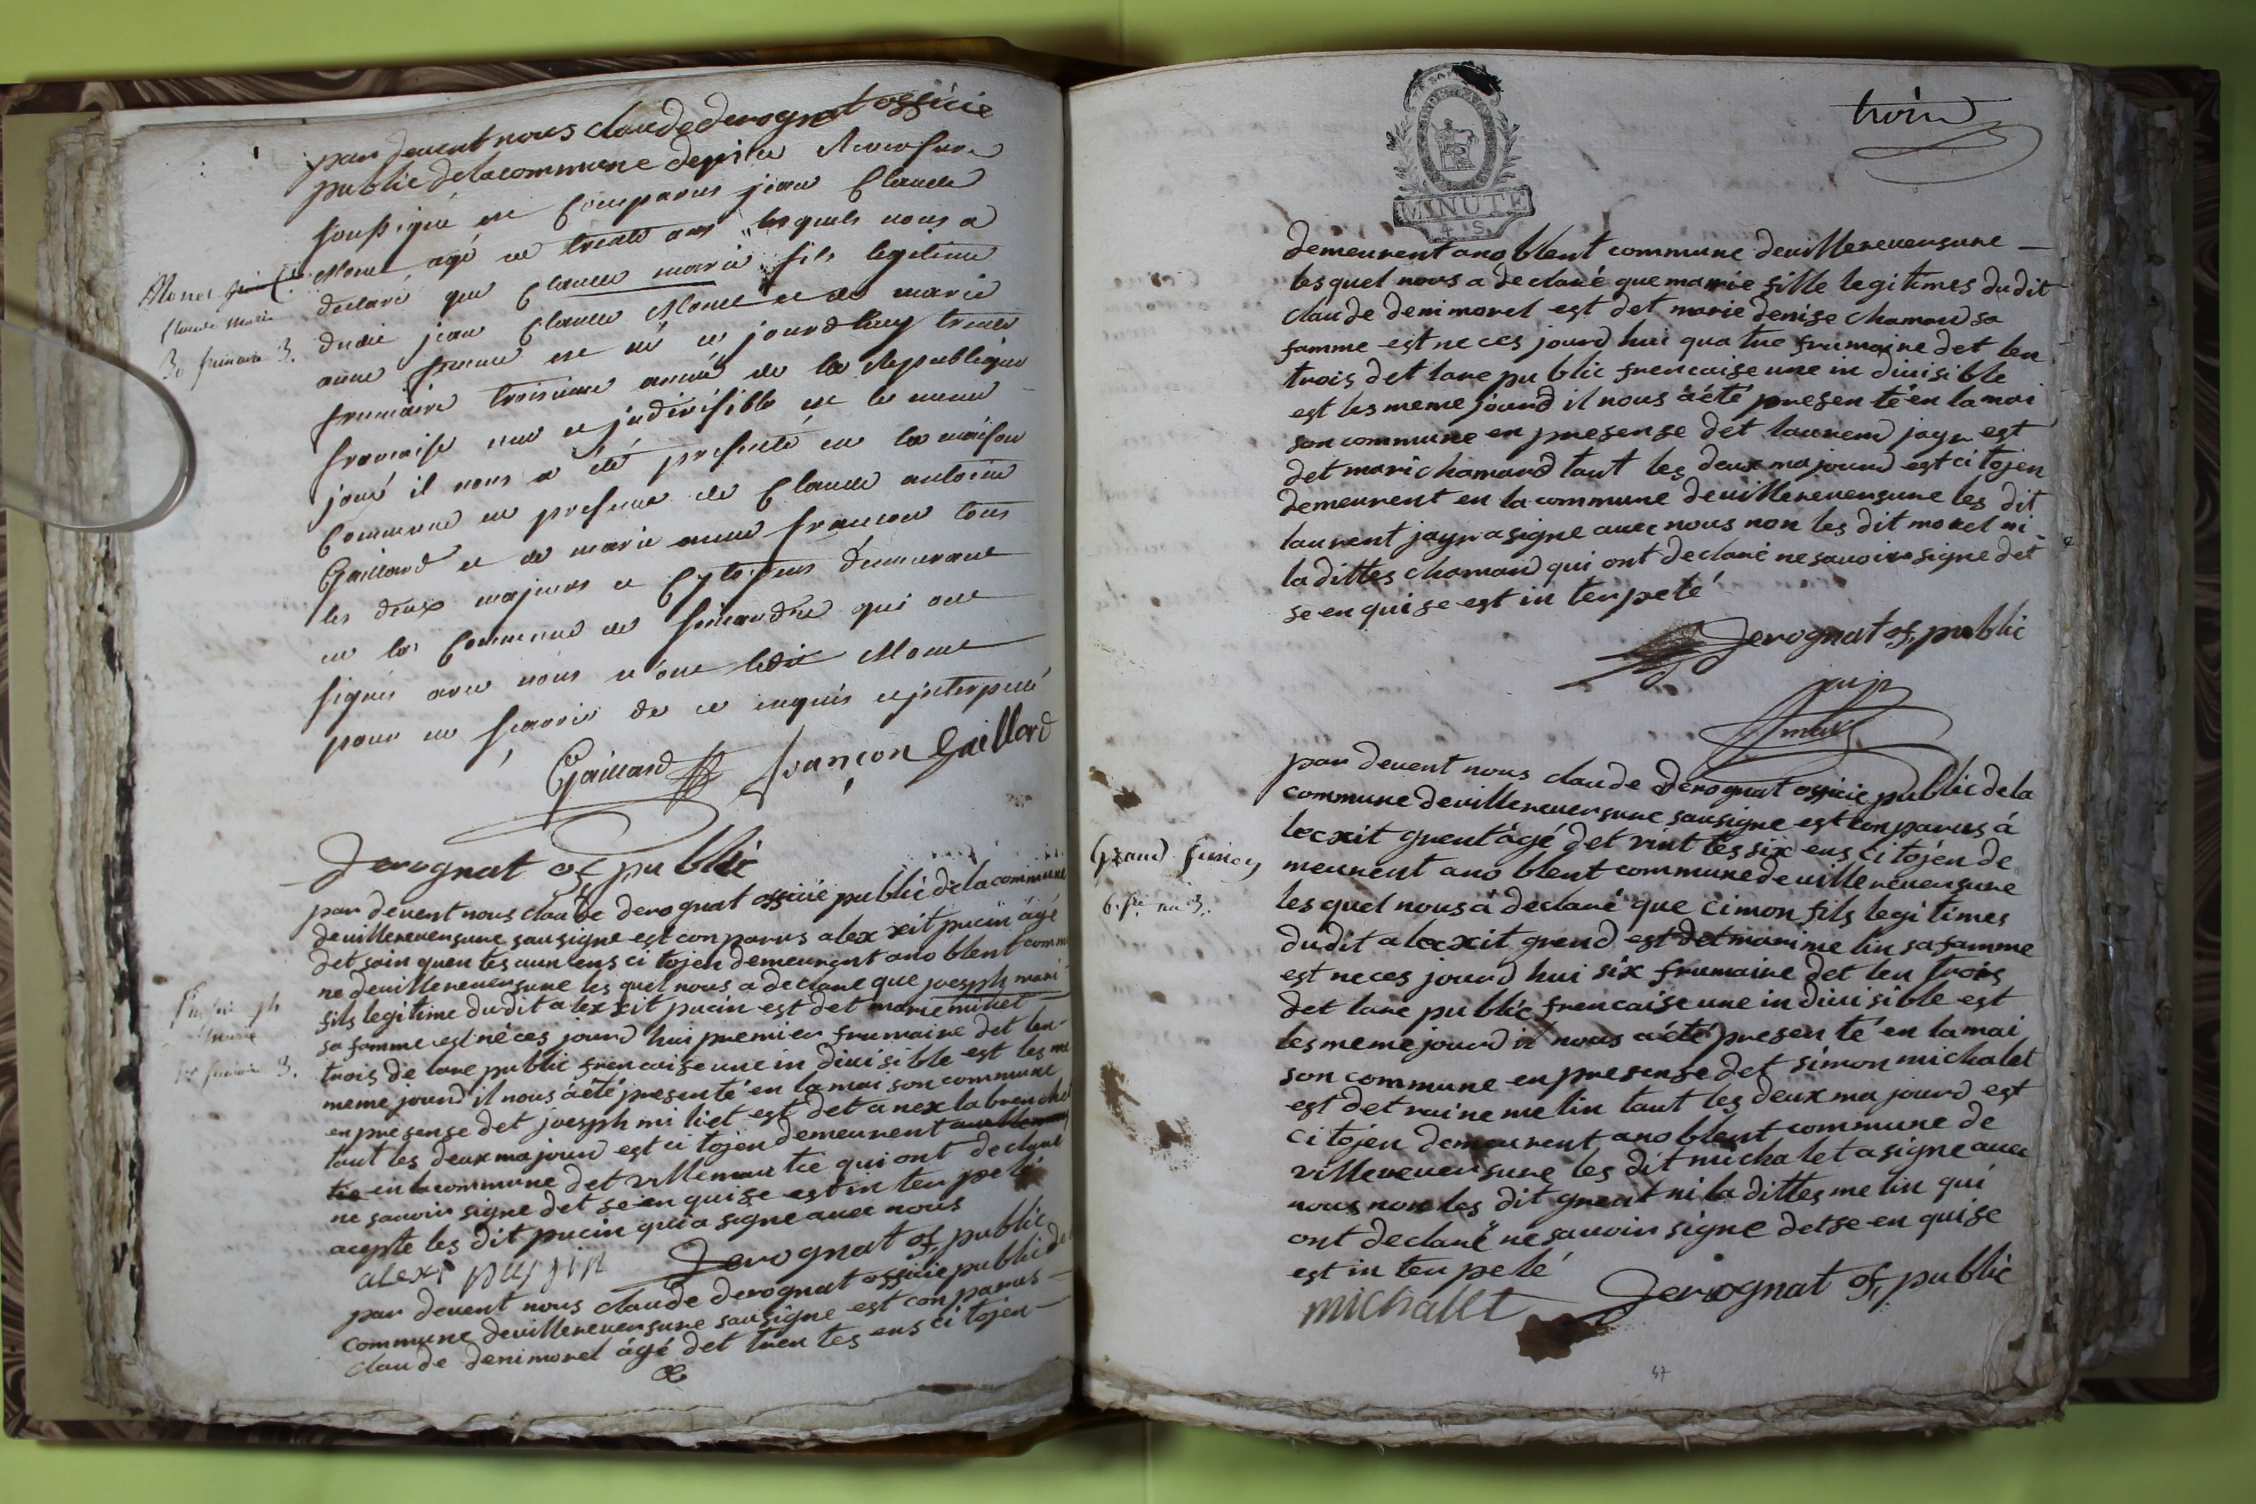 par devent nous claude derognat officie
public de la commune de
soussigné est Comparus jean Claude
Monet agé de trente ans lesquels nous a
declaré que Claude marie fils legitime
dudit jean Claude Monet et de marie
anne est né ce jourd huy trente
frumaire troisieme année de la Republique
francaise une et jndivisible et le meme
jour il nous a été presenté en la maison
Commune en presence de Claude antoine
Gaillard et de marie anne francon tous
les deux majeurs et Cytoyens demeurant
en la Commune de simandre qui ont
signés avec nous n'one ledit Monet
pour ne scavoir de ce enquis et jnterpellé
Gaillard françon Gaillard
Monet
Claude Marie
30 frimaire 3.
Derognat of public
par devent nous claude derognat officie public de la commune
de villereversure sousigne est conparus alex xit pucin ágé
det soin quentes aun ens ci tojen demeurent ano blent commu
ne de villereversure les quel nous a declare que joesph mari
fils legitime dudit alex xit pucin est det marie miliet
sa famme est né ces jourd hui premier frumaire det len
trois de lare public frencaise une in divisible est les me
meme jourd il nous á été presenté en la mai son commune
en presense det joesph mi liet est det anex la brenche
taut les deux majourd est ci tojen demeurent
en la commune det villemoutie qui ont declare
ne savoir signe det se en qui se est in ter pelé
acepte les dit pucin qui a signe avec nous
alexi pussin Derognat of, public
marie
1er frimaire 3.
par devent nous claude derognat officie public de
commune de villereversure sousigne est conparus
claude deni morel ágé det tren tes ens ci tojen
troin
MINUTE
4 S.
demeurent ano blent commune de villereversure
les quel nous a declaré que marie fille legitimes du dit
claude deni morel est det marie denise chamard sa
famme est ne ces jourd hui qua tre frumaire det len
trois det lare pu blic frencaise une in divisible
est les meme jourd il nous á été presen té en la mai
son commune en presense det laurend jayr est
det mari chamard taut les deux ma jourd est ci tojen
demeurent en la commune de villereversure les dit
laurent jayr a signe avec nous non les dit morel ni
la dittes chamard qui ont declaré ne savoir signe det
se en qui se est in ter peté
Derognat of, public
par devent nous claude derognat officie public de la
commune de villereversure sausigne est conparus á
lecxit grent ágé det vint tes six ens ci tojen de
meurent ano blent commune de villereversure
les quel nous á declaré que cimon fils legi times
dudit a lecxit grend est det mari me lin sa famme
est ne ces jourd hui six frumaire det len trois
det lare public frencaise une in divisible est
les meme jourd il nous a été presen té en la mai
son commune en presense det simon michalet
est det raine me lin taut les deux ma jourd est
ci tojen demeurent ano blent commune de
villereversure les dit michalet a signe avec
nous non les dit grent ni la dittes me lin qui
ont declaré ne savoir signe det se en qui se
est in ter pelé
michallet Derognat of, public
Grand
6. fre an 3.
47